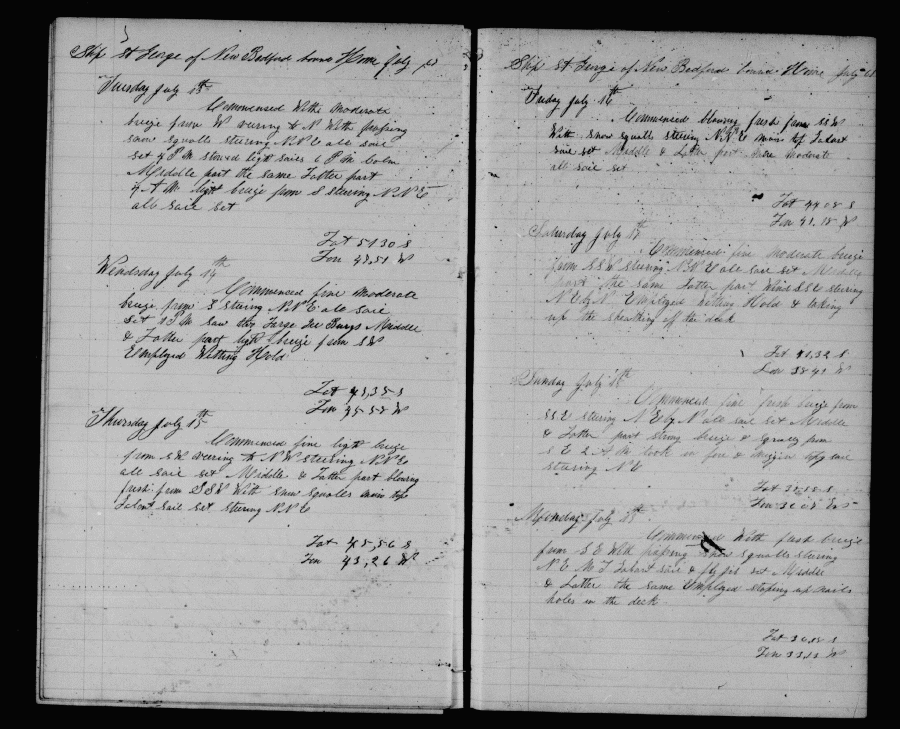 Ship St George of New Bedford bound Home July
Tuesday July 13th
Commensed With moderate
breize from W veering to N With passing
snow squalls steering N N E all sail
set 4 P M stowed light sails 6 P M calm
Middle part the same Latter part
4 A M light breize from S steering N N E
all sail set
Lat 51 30 S
Lon 47,51 W
Wendsday July 14th
Commensed fine moderate
breize from S steering N N E all sail
Set P M saw Large Ice Burgs Middle
& Latter part light breize from S W
Employed Wetting Hold
Lat 48,35 S
Lon 45 58 W
Thursday July 15th
Commensed fine light breize
from S W veering to N W steering N N E
all sail set Middle & Latter part blowing
fresh from S S W With snow squalls main top
Galant sail set steering N N E
Lat 45,56 S
Lon 43,26 W
Ship St George of New Bedford bound Home July
Friday July 16th
Commensed blowing fresh from S S W
With snow squalls steering N N E main top Galant
sail set Middle & Latter part more moderate
all sail set
Lat 44 08 S
Lon 41.18 W
Saturday July 17
Commensed fine moderate breize
from S S W steering N N E all sail set Middle
part the same Latter part Wind S S E steering
N E by N Employed wetting Hold & taking
up the sheathing off the deck
Lat 41,32 S
Lon 38 41 W
Sunday July 18th
Commensed fine fresh breize from
S S E steering N E by N all sail set Middle
& Latter part strong breize & squally from
S E 2 A M took in fore & mizzen top sail
steering N E
Lat
Lon W
Monday July
Commensed With fresh breize
from S E With passing snow squalls steering
N E M T Galant sail & fly jib set Middle
& Latter the same Employed stoping up nails
holes in the deck
Lat S
Lon 33,13 W